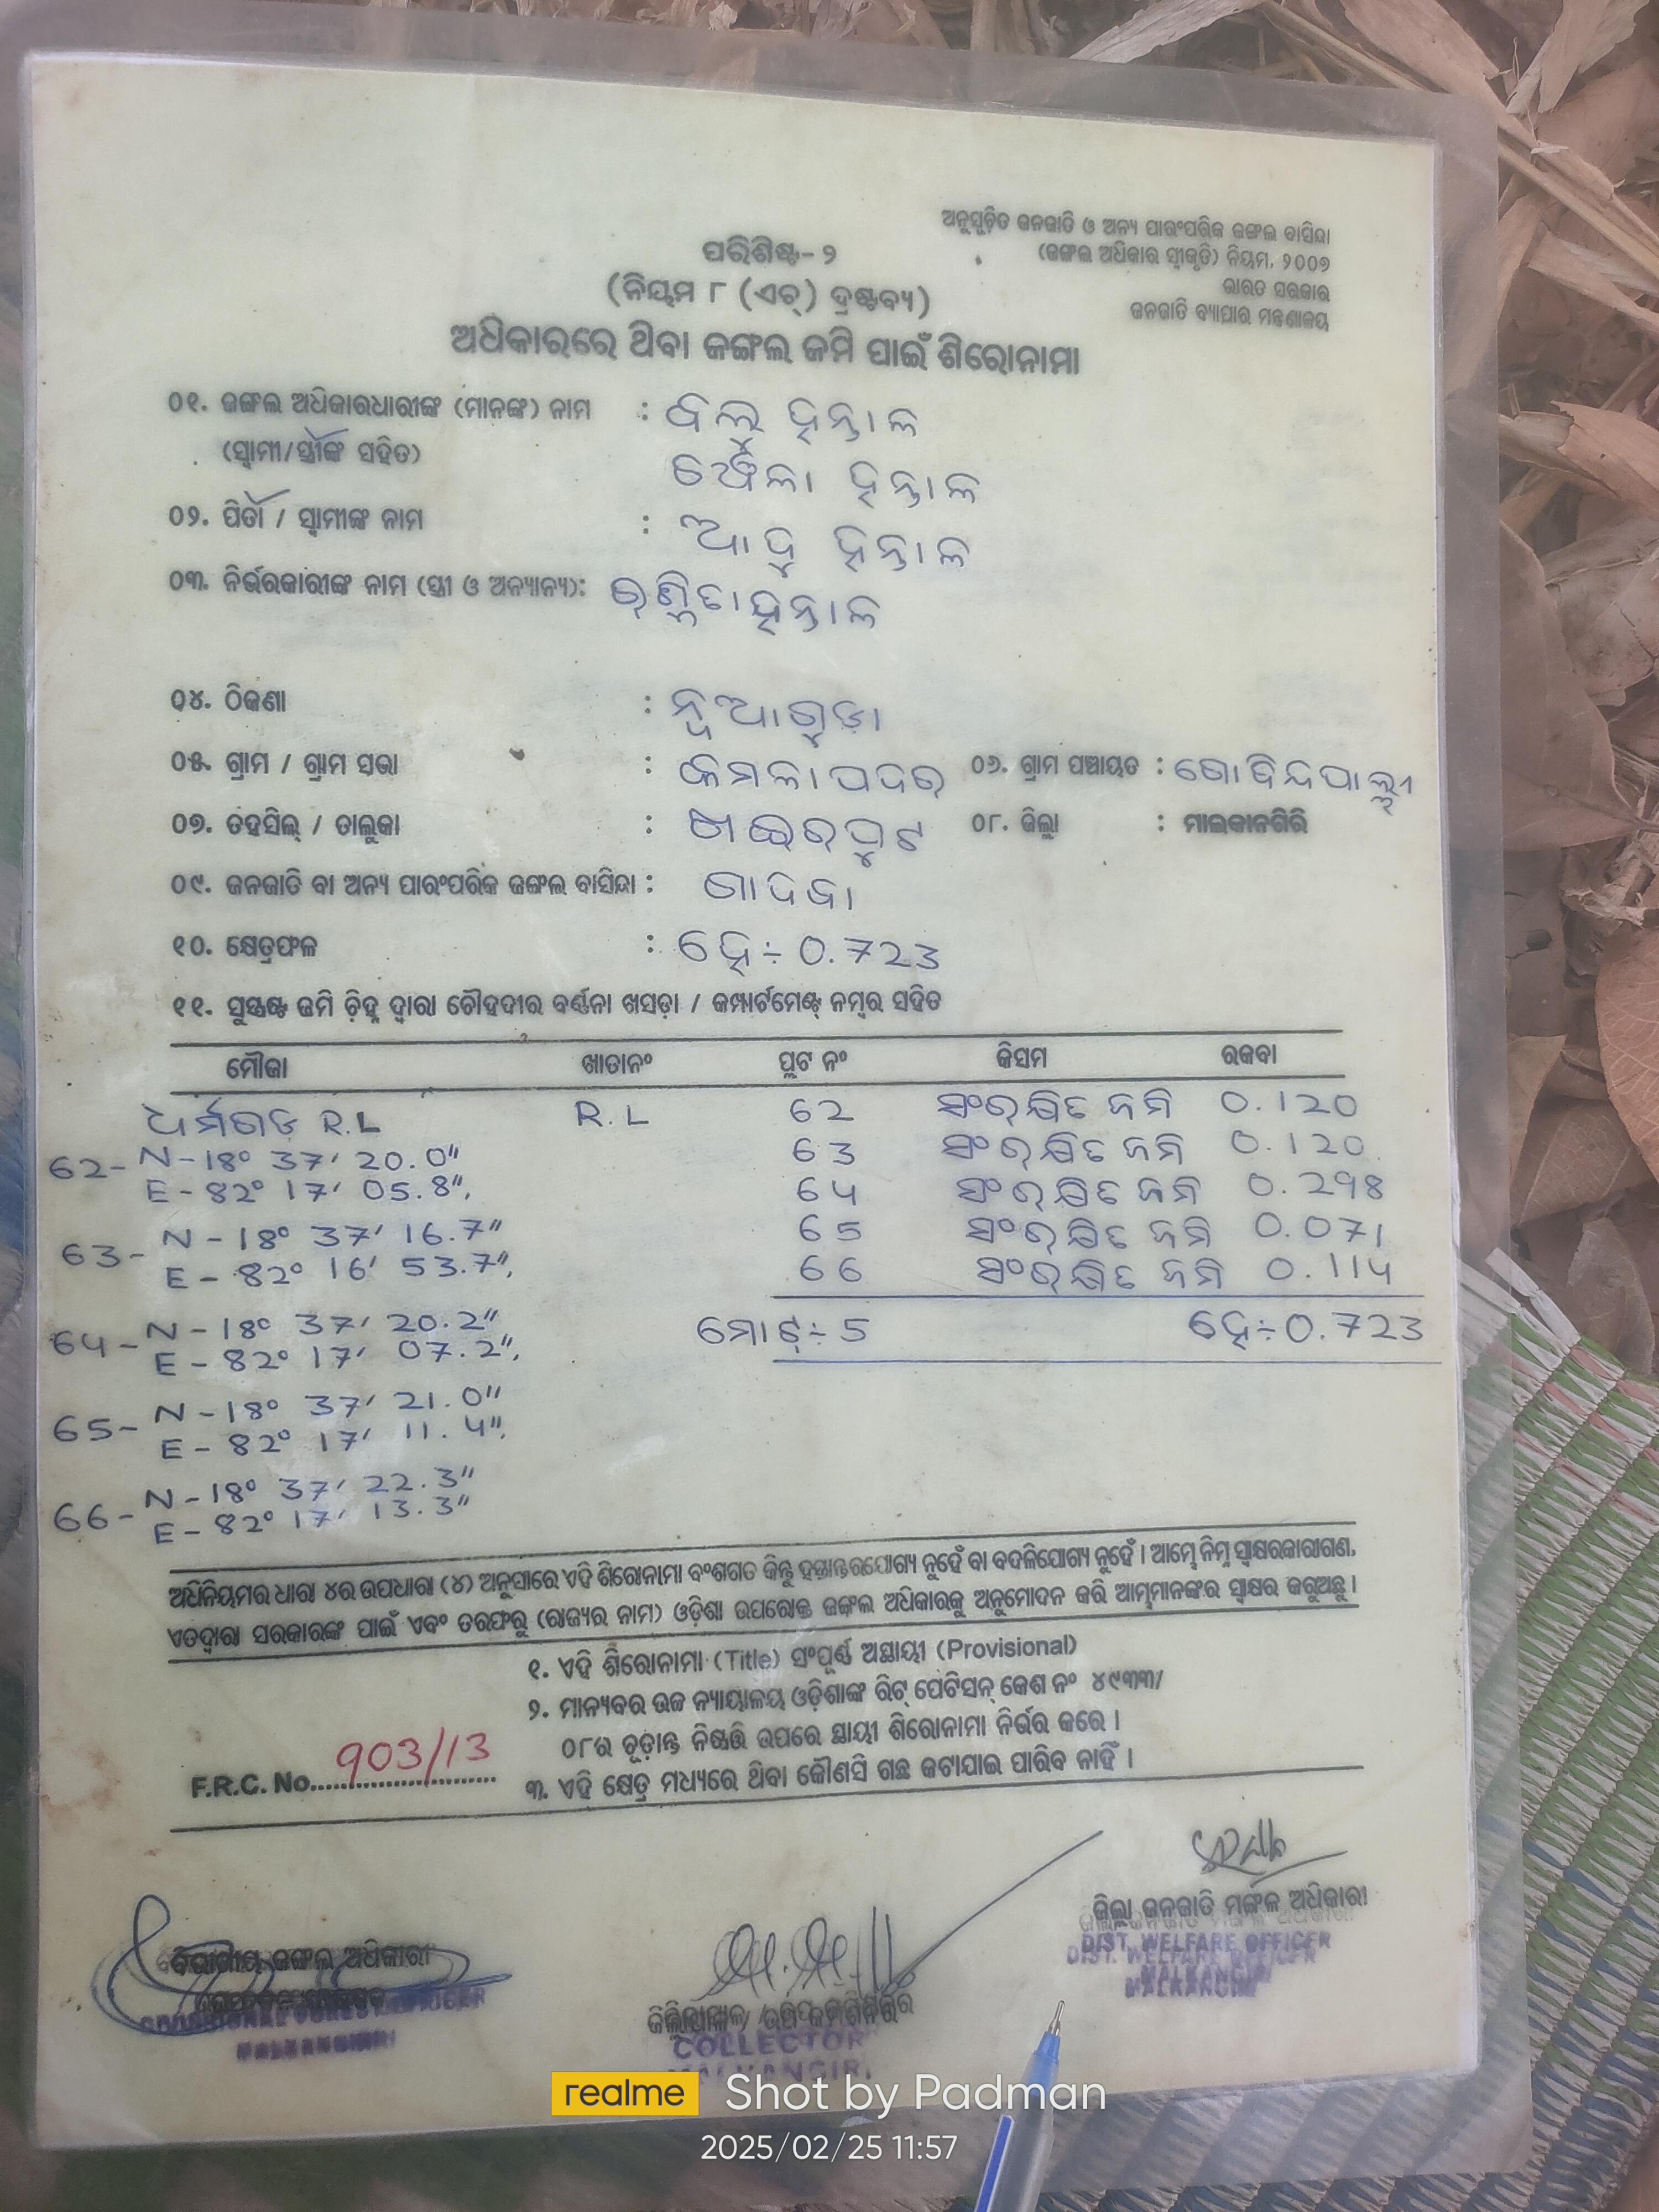 ଅନୁସୂଚିତ ଜନଜାତି ଓ ଅନ୍ୟ ପାରଂପରିକ ଜଙ୍ଗଲ ବାସିନ୍ଦା
(ଜଙ୍ଗଲ ଅଧିକାର ସ୍ୱୀକୃତି) ନିୟମ, ୨୦୦୭
ଭାରତ ସରକାର
ଜନଜାତି ବ୍ୟାପାର ମନ୍ତ୍ରଣାଳୟ
ପରିଶିଷ୍ଟ- ୨
(ନିୟମ ୮ (ଏଚ୍) ଦ୍ରଷ୍ଟବ୍ୟ)
ଅଧିକାରରେ ଥିବା ଜଙ୍ଗଲ ଜମି ପାଇଁ ଶିରୋନାମା
୦୧. ଜଙ୍ଗଲ ଅଧିକାରଧାରୀଙ୍କ (ମାନଙ୍କ) ନାମ : ବଲ୍ଲୁ ହନ୍ତାଳ
(ସ୍ୱାମୀ/ସ୍ତ୍ରୀଙ୍କ ସହିତ) ଝୈଳା ହନ୍ତାଳ
୦୨. ପିତା / ସ୍ୱାମୀଙ୍କ ନାମ : ଆଦୁ ହନ୍ତାଳ
୦୩. ନିର୍ଭରକାରୀଙ୍କ ନାମ (ସ୍ତ୍ରୀ ଓ ଅନ୍ୟାନ୍ୟ): ହନ୍ତାଳ
୦୪. ଠିକଣା : ନୂଆଗୁଡା
୦୫. ଗ୍ରାମ / ଗ୍ରାମ ସଭା : କମଳାପଦର ୦୬. ଗ୍ରାମ ପଞ୍ଚାୟତ : ଗୋବିନ୍ଦପାଲ୍ଲୀ
୦୭. ତହସିଲ୍ / ତାଲୁକା : ଖଇରପୁଟ ୦୮. ଜିଲ୍ଲା : ମାଲକାନଗିରି
୦୯. ଜନଜାତି ବା ଅନ୍ୟ ପାରଂପରିକ ଜଙ୍ଗଲ ବାସିନ୍ଦା : ଗାଦବା
୧୦. କ୍ଷେତ୍ରଫଳ : ହେ÷0.723
୧୧. ସୁସ୍ପଷ୍ଟ ଜମି ଚିହ୍ନ ଦ୍ୱାରା ଚୌହଦୀର ବର୍ଣ୍ଣନା ଖସଡ଼ା / କମ୍ପାର୍ଟମେଣ୍ଟ୍ ନମ୍ବର ସହିତ
ମୌଜା ଖାତାନଂ ପ୍ଲଟ ନଂ କିସମ ରକବା
ଧର୍ମଗଡ R.L R.L 62 ସଂରକ୍ଷିତ ଜମି 0.120
62- N-18° 37' 20.0" 63 ସଂରକ୍ଷିତ ଜମି 0.120
E-82° 17' 05.8", 64 ସଂରକ୍ଷିତ ଜମି 0.298
63- N-18° 37' 16.7" 65 ସଂରକ୍ଷିତ ଜମି 0.071
E-82° 16' 53.7", 66 ସଂରକ୍ଷିତ ଜମି 0.114
64- N-18° 37' 20.2" ମୋଟ୍÷5 ହେ÷0.723
E-82° 17' 07.2",
65- N-18° 37' 21.0"
E-82° 17' 11.4",
66- N-18° 37' 22.3"
E-82° 17' 13.3"
ଅଧିନିୟମର ଧାରା ୪ର ଉପଧାରା (୪) ଅନୁସାରେ ଏହି ଶିରୋନାମା ବଂଶଗତ କିନ୍ତୁ ହସ୍ତାନ୍ତରଯୋଗ୍ୟ ନୁହେଁ ବା ବଦଳିଯୋଗ୍ୟ ନୁହେଁ । ଆମ୍ଭେ ନିମ୍ନ ସ୍ୱାକ୍ଷରକାରୀଗଣ,
ଏତଦ୍ୱାରା ସରକାରଙ୍କ ପାଇଁ ଏବଂ ତରଫରୁ (ରାଜ୍ୟର ନାମ) ଓଡ଼ିଶା ଉପରୋକ୍ତ ଜଙ୍ଗଲ ଅଧିକାରକୁ ଅନୁମୋଦନ କରି ଆମ୍ଭମାନଙ୍କର ସ୍ୱାକ୍ଷର କରୁଅଛୁ ।
୧. ଏହି ଶିରୋନାମା (Title) ସଂପୂର୍ଣ୍ଣ ଅସ୍ଥାୟୀ (Provisional)
୨. ମାନ୍ୟବର ଉଚ୍ଚ ନ୍ୟାୟାଳୟ ଓଡ଼ିଶାଙ୍କ ରିଟ୍ ପେଟିସନ୍ କେଶ ନଂ ୪୯୩୩/
୦୮ର ଚୂଡ଼ାନ୍ତ ନିଷ୍ପତ୍ତି ଉପରେ ସ୍ଥାୟୀ ଶିରୋନାମା ନିର୍ଭର କରେ ।
F.R.C. No. 903/13
୩. ଏହି କ୍ଷେତ୍ର ମଧ୍ୟରେ ଥିବା କୌଣସି ଗଛ କଟାଯାଇ ପାରିବ ନାହିଁ ।
ଜିଲ୍ଲା ଜନଜାତି ମଙ୍ଗଳ ଅଧିକାରୀ
DIST. WELFARE OFFICER
MALKANGIRI
ବିଭାଗୀୟ ଜଙ୍ଗଲ ଅଧିକାରୀ
DIVISIONAL FOREST OFFICER
MALKANGIRI
ଜିଲ୍ଲାପାଳ /
COLLECTOR
MALKANGIRI
realme Shot by Padman
2025/02/25 11:57